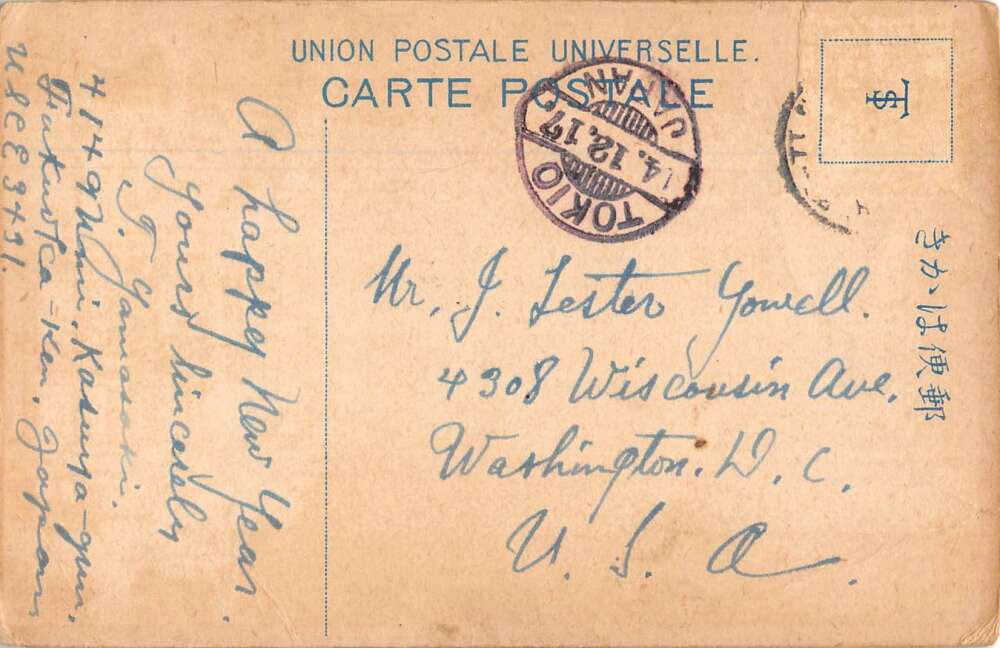 UNION POSTALE UNIVERSELLE.
CARTE POSTALE
TOKIO
14.12.17
JAPAN
きかは便郵
Mr. J. Lester Yowell.
4308 Wisconsin Ave.
Washington. D. C.
U. S. A.
A happy New Year.
Yours Sincerely
F. Yamasaki.
4149 Umi, Kasuya-gun,
Fukuoka-Ken, Japan